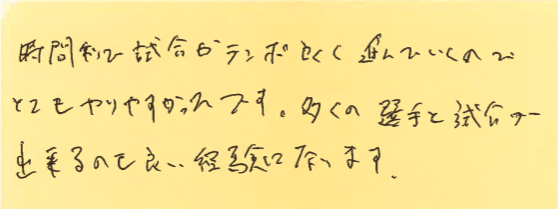 時間制で試合がテンポよく進んでいくので
とてもやりやすかったです。多くの選手と試合が
出来るのも良い経験になります。